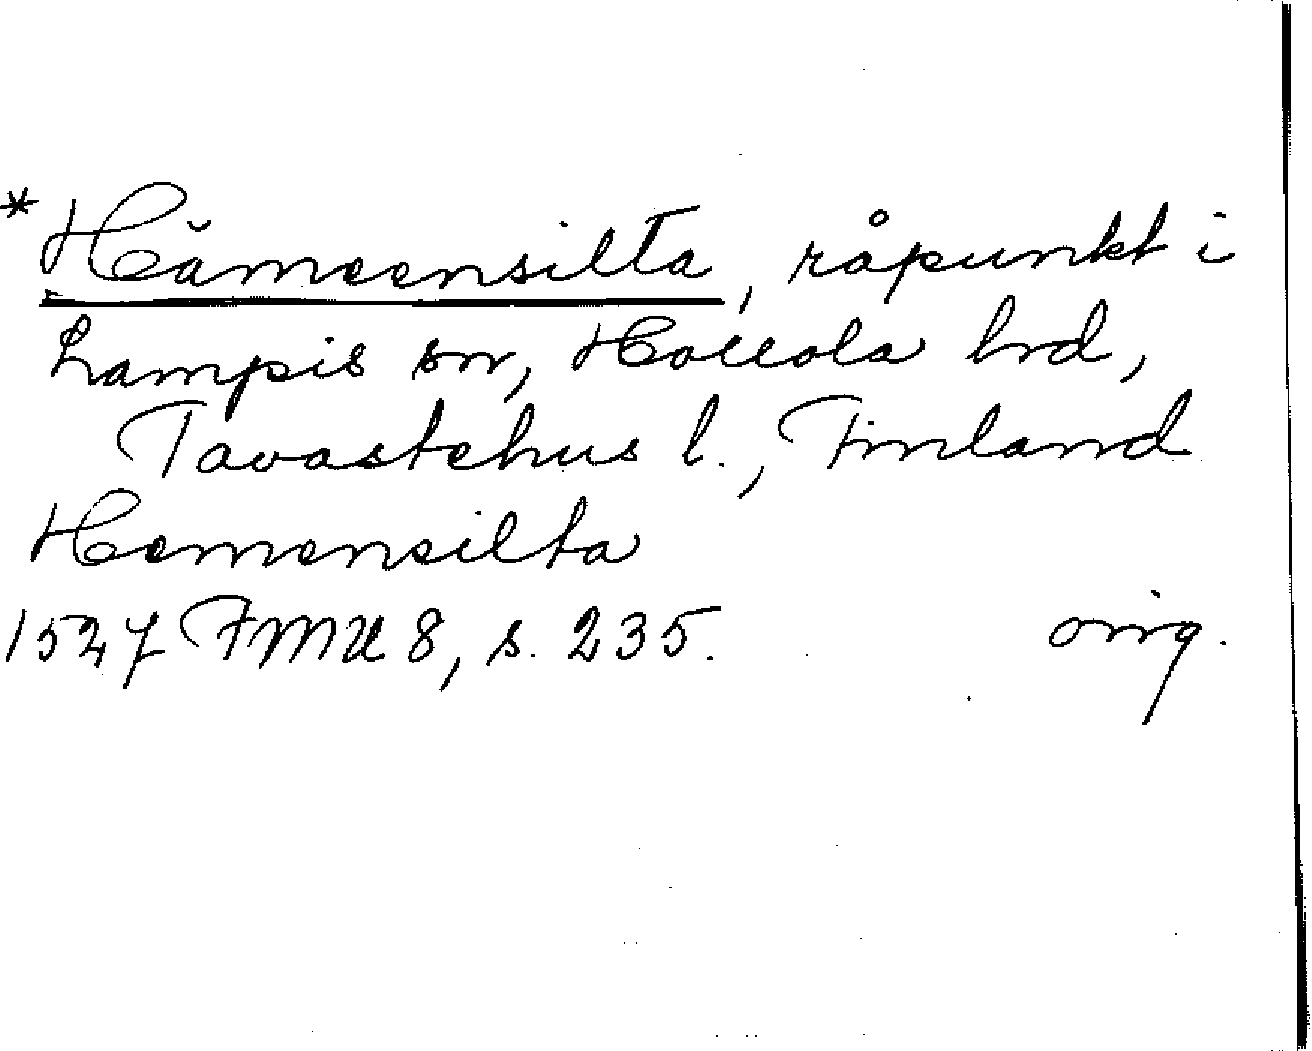 *Hämeensilta, råpunkt i
Lampis sn, Hollola hrd,
Tavastehus l., Finland
Hemensilta
1527 FMU 8, s. 235. orig.